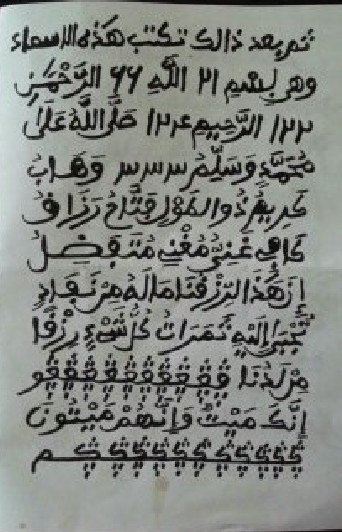 ثم بعد ذالك تكتب هذه الاسماء
وهي بسم ٢١ اللَّهِ ٦٦ الرَّحْمَٰنِ
١٢٢ الرَّحِيمِ ١٢٤ صَلَّى اللَّهُ عَلَىٰ
مُحَمَّدٍ وَسَلِّمْ س س س س وَهَابُ
كَرِيمُ ذُو الطَّوْلِ فَتَّاحُ رَزَاقُ
كَافِى غَنِيُّ مُغْنِي مُتَفَضِلُ
إِنَّ هَذَا لَرِزْقُنَا مَا لَهُ مِنْ نَفَادٍ
يُجْبَىٰ إِلَيْهِ ثَمَرَاتُ كُلِّ شَىْءٍ رِزْقًا
مِنْ لَدُنَا
إِنَّكَ مَيِّتٌ وَإِنَّهُمْ مَيِّتُونَ